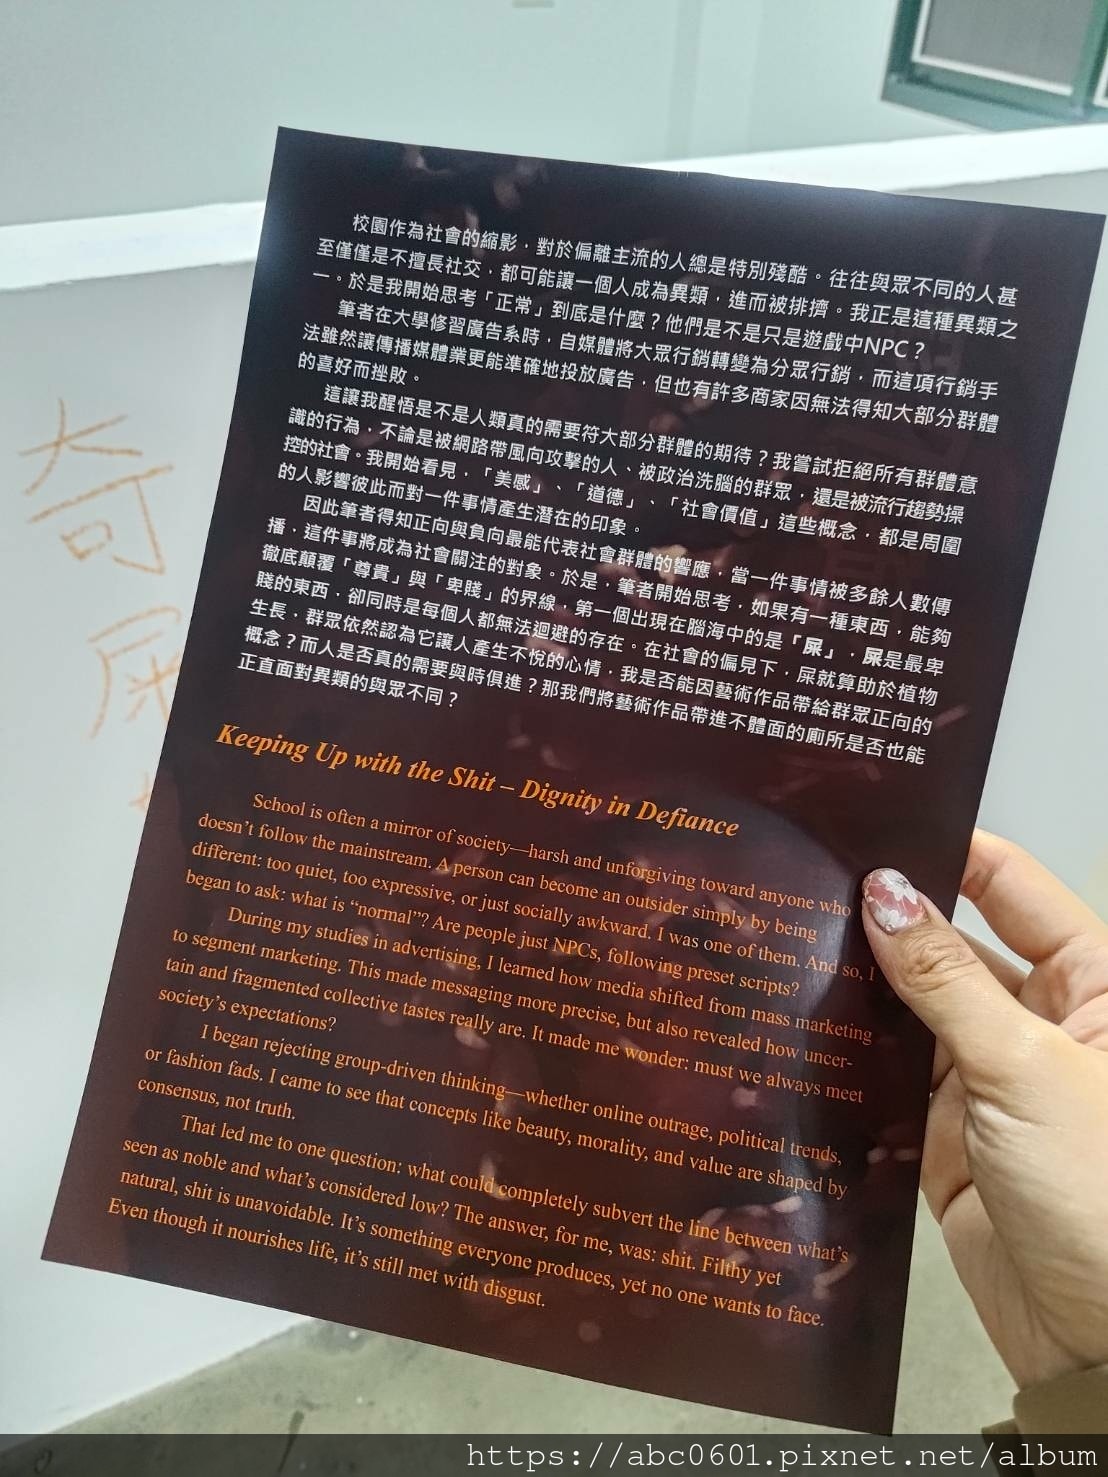 校園作為社會的縮影，對於偏離主流的人總是特別殘酷。往往與眾不同的人甚
至僅僅是不擅長社交，都可能讓一個人成為異類，進而被排擠。我正是這種異類之
一。於是我開始思考「正常」到底是什麼？他們是不是只是遊戲中NPC？
筆者在大學修習廣告系時，自媒體將大眾行銷轉變為分眾行銷，而這項行銷手
法雖然讓傳播媒體業更能準確地投放廣告，但也有許多商家因無法得知大部分群體
的喜好而挫敗。
這讓我醒悟是不是人類真的需要符大部分群體的期待？我嘗試拒絕所有群體意
識的行為，不論是被網路帶風向攻擊的人、被政治洗腦的群眾，還是被流行趨勢操
控的社會。我開始看見，「美感」、「道德」、「社會價值」這些概念，都是周圍
的人影響彼此而對一件事情產生潛在的印象。
因此筆者得知正向與負向最能代表社會群體的響應，當一件事情被多餘人數傳
播，這件事將成為社會關注的對象。於是，筆者開始思考，如果有一種東西，能夠
徹底顛覆「尊貴」與「卑賤」的界線，第一個出現在腦海中的是「屎」，屎是最卑
賤的東西，卻同時是每個人都無法迴避的存在。在社會的偏見下，屎就算助於植物
生長，群眾依然認為它讓人產生不悅的心情，我是否能因藝術作品帶給群眾正向的
概念？而人是否真的需要與時俱進？那我們將藝術作品帶進不體面的廁所是否也能
正直面對異類的與眾不同？
Keeping Up with the Shit – Dignity in Defiance
School is often a mirror of society—harsh and unforgiving toward anyone who
doesn’t follow the mainstream. A person can become an outsider simply by being
different: too quiet, too expressive, or just socially awkward. I was one of them. And so, I
began to ask: what is “normal”? Are people just NPCs, following preset scripts?
During my studies in advertising, I learned how media shifted from mass marketing
to segment marketing. This made messaging more precise, but also revealed how uncer-
tain and fragmented collective tastes really are. It made me wonder: must we always meet
society’s expectations?
I began rejecting group-driven thinking—whether online outrage, political trends,
or fashion fads. I came to see that concepts like beauty, morality, and value are shaped by
consensus, not truth.
That led me to one question: what could completely subvert the line between what’s
seen as noble and what’s considered low? The answer, for me, was: shit. Filthy yet
natural, shit is unavoidable. It’s something everyone produces, yet no one wants to face.
Even though it nourishes life, it’s still met with disgust.
奇屎
https://abc0601.pixnet.net/album